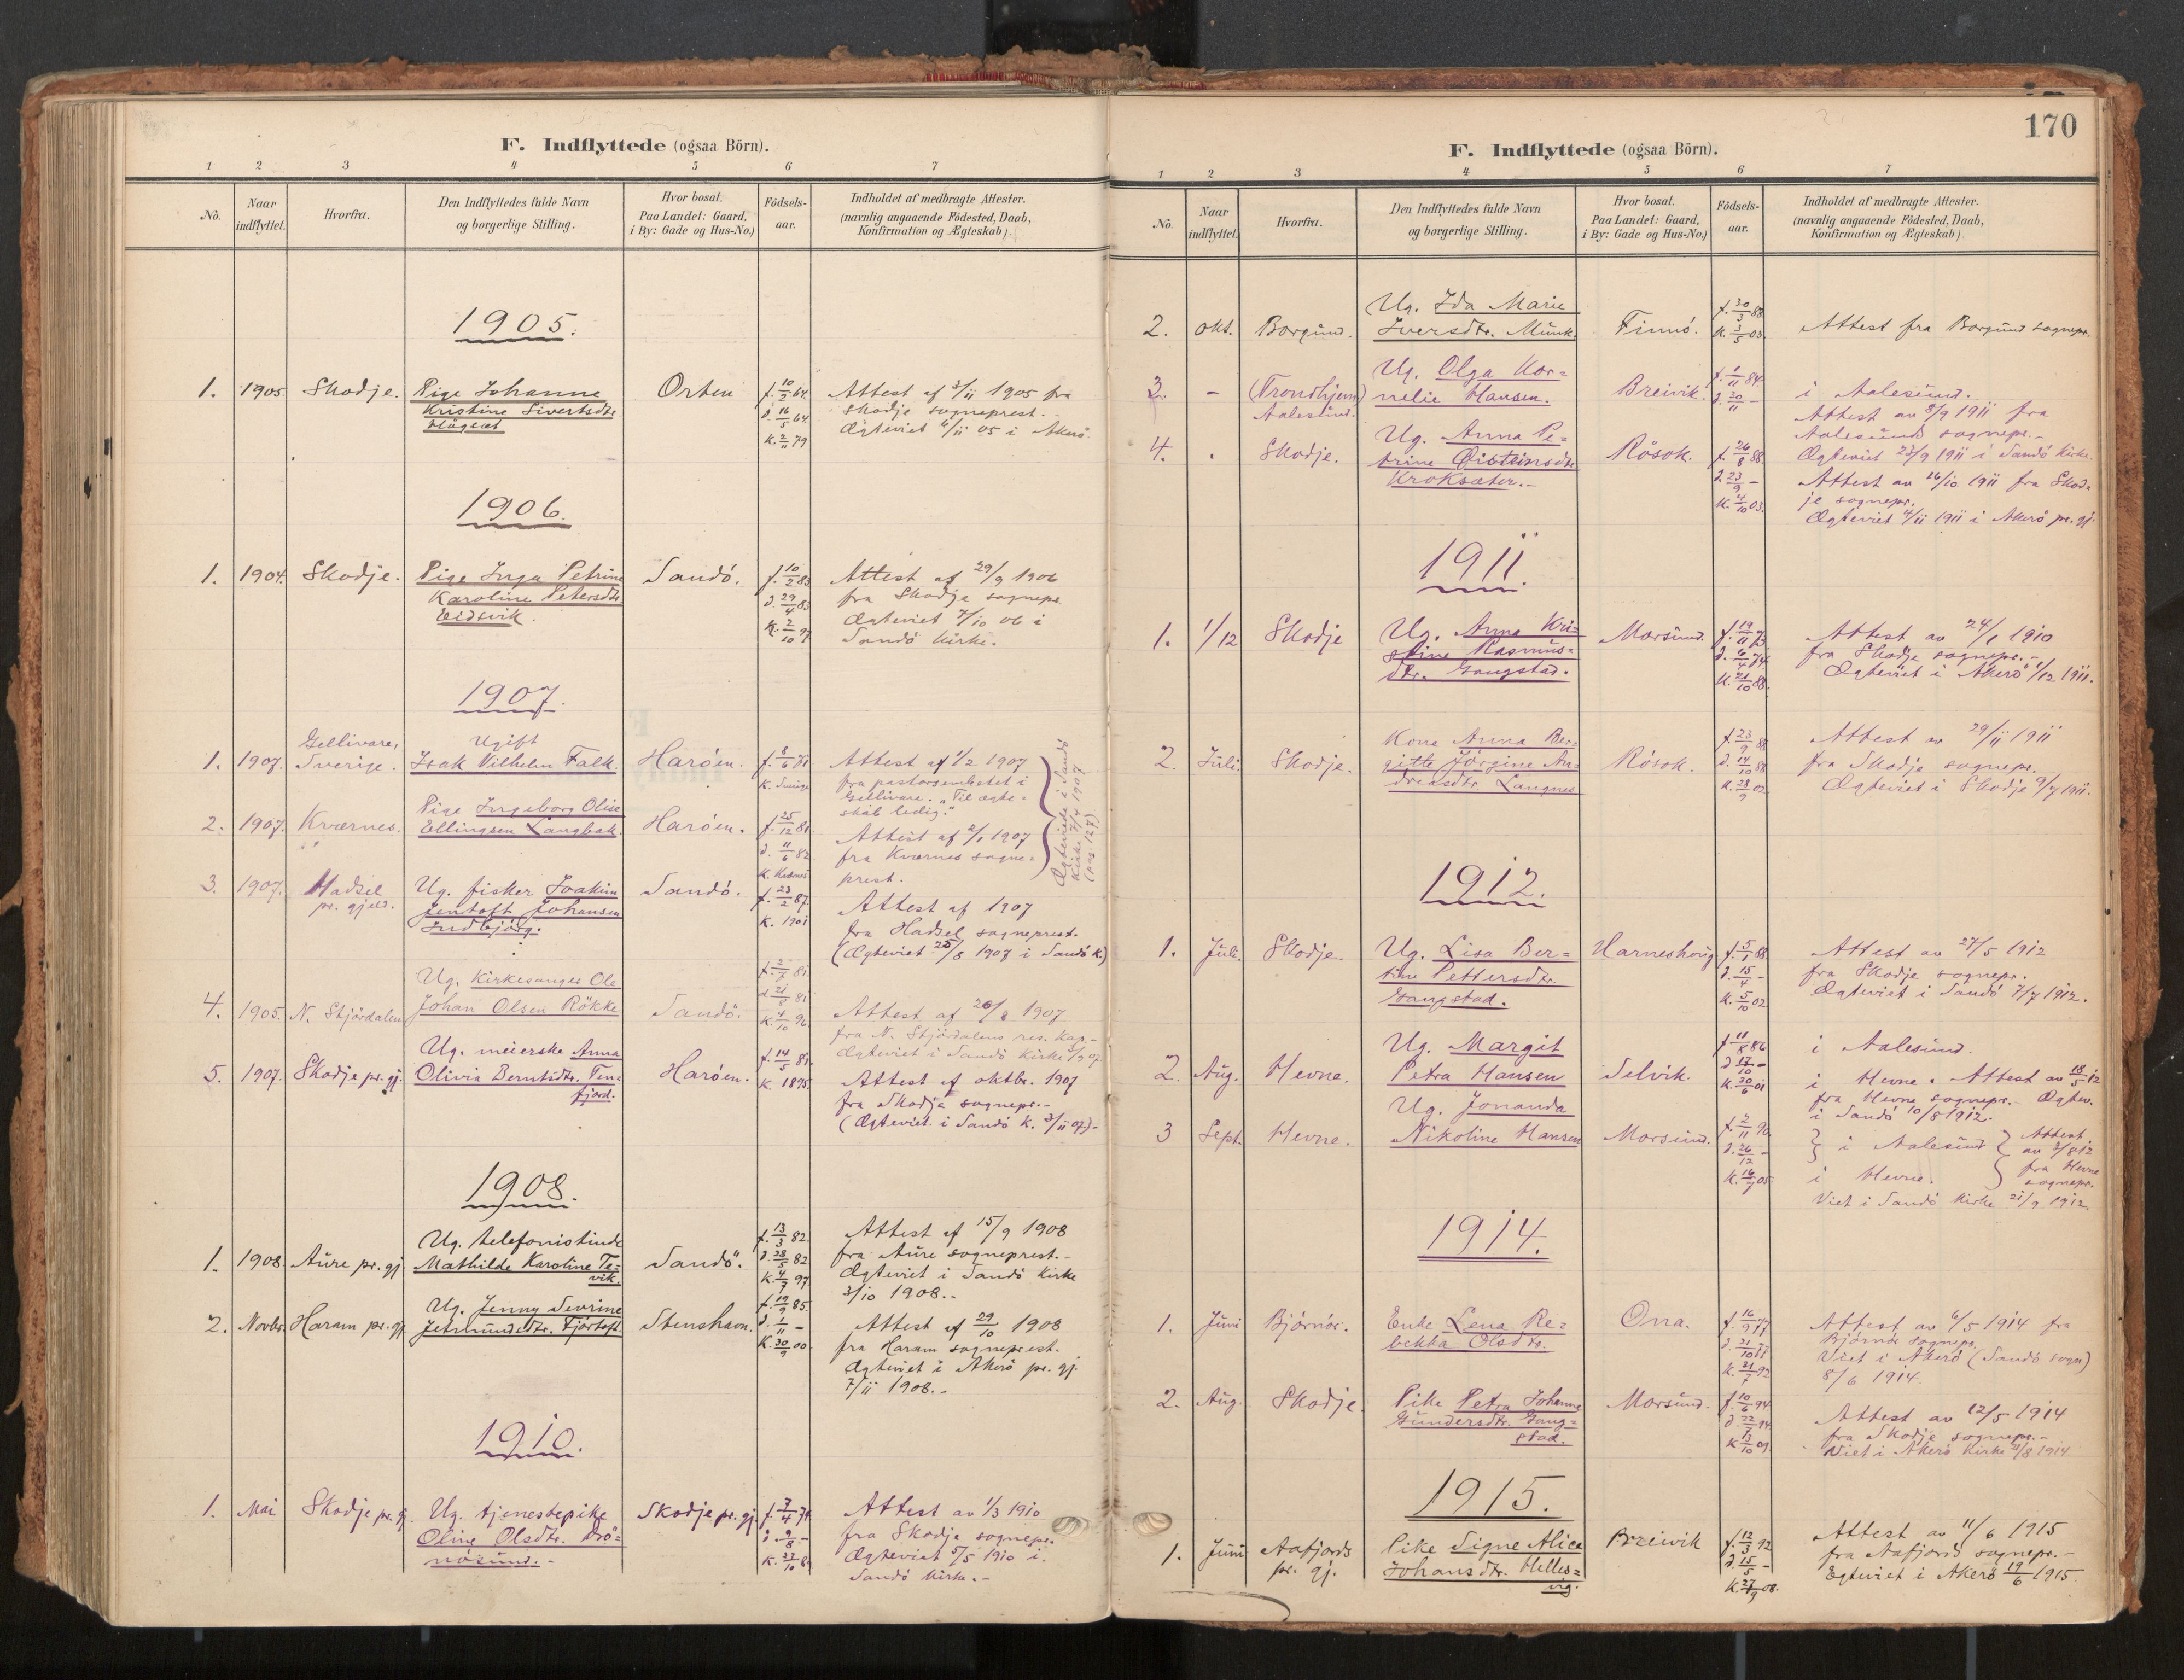 F. Indflyttede (ogsaa Börn).
1 2 3 4 5 6 7
No. Naar indflyttet. Hvorfra. Den Indflyttedes fulde Navn og borgerlige Stilling. Hvor bosat. Paa Landet: Gaard, i By: Gade og Hus-No.) Födsels-aar. Indholdet af medbragte Attester. (navnlig angaaende Födested, Daab, Konfirmation og Ægteskab)
1905.
1. 1905. Skodje. Pige Johanne Orten f. 10/2 64. Attest af 3/11 1905 fra
Kristine Sivertsdtr. d. 16/5 64 Skodje sogneprest.-
K. 2/11 79 Ægteviet 4/11 05 i Akerö.
1906.
1. 1904. Skodje. Pige Inga Petrine Sandö. f. 10/2 83 Attest af 29/9 1906
Karoline Petersdtr. d. 29/4 83 fra Skodje sognepr.
Eidsvik. K. 2/10 97 Ægteviet 7/10 06 i
Sandö Kirke.
1907.
1. 1907. Gellivare, Sverige. Ugift Haröen. f. 8/6 81 Attest af 1/2 1907
Isak Vilhelm Falk. K. Sverige fra pastorsembetet i
Gellivare. "Til ægte=
skab ledig."
2. 1907. Kværnes. Pige Ingeborg Olise Haröen. f. 25/12 81 Attest af 2/1 1907
Ellingsen Langbak. d. 11/6 82 fra Kværnes sogne=
prest.
Ægteviede i Sandö
Kirke 7/4 1907
(pag 127)
3. 1907. Hadsel pr. gjeld. Ug. fisker Joakim Sandö. f. 23/2 87. Attest af 1907
Jentoft Johansen K. 1901 fra Hadsel sogneprest.
Indbjörg. (Ægteviet 25/8 1907 i Sandö k.)
4. 1905. N. Stjördalen Ug. Kirkesanger Ole Sandö. Attest af 26/8 1907
Johan Olsen Rökke d. 21/8 81 K. 4/10 96. fra N. Stjördalens res. Kap.-
Ægteviet i Sandö Kirke 07
5. 1907. Skodje pr. gj. Ug. meierske Anna Haröen. f. 14/5 81. Attest af oktbr. 1907
Olivia Berntsdtr. Ten= K. 1895. fra Skodje sognepr.-
fjord. (Ægteviet i Sandö K. 3/11 07.)-
1908.
1. 1908. Aure pr. gj. Ug. telefonistinde Sandö. f. 13/3 82. Attest af 15/9 1908
Mathilde Karoline Te= d. 28/5 82 fra Aure sogneprest.-
vik. K. 4/7 97. Ægteviet i Sandö Kirke
3/10 1908.-
2. Novbr. Haram pr. gj. Ug. Jenny Sevrine Stenshavn. f. 19/9 85. Attest af 29/10 1908
Jetmundsdtr. Fjörtoft. d. 1/11 - fra Haram sogneprest.
K. 30/9 00. Ægteviet i Akerö pr. gj.
7/11 1908.-
1910.
1. Mai Skodje pr. gj. Ug. tjenestepike Skodje pr. gj. f. 7/4 74. Attest av 1/3 1910
Oline Olsdtr. Drö= d. 9/8 - fra Skodje sognepr.
nösund.- Ægteviet 5/5 1910 i
Sandö kirke.-
170
F. Indflyttede (ogsaa Börn).
1 2 3 4 5 6 7
No. Naar indflyttet. Hvorfra. Den Indflyttedes fulde Navn og borgerlige Stilling. Hvor bosat. Paa Landet: Gaard, i By: Gade og Hus-No.) Födsels-aar. Indholdet af medbragte Attester. (navnlig angaaende Födested, Daab, Konfirmation og Ægteskab)
2. okt. Borgund. Ug. Ida Marie Finnö. f. 30/3 88 Attest fra Borgund sognepr.
Iversdtr. Munk. K. 3/5 03.
3. - (Trondhjem) Aalesund. Ug. Olga Kor= Breivik. f. 1/11 84. i Aalesund.
nelie Hansen. d. 30/11 - Attest av 8/9 1911 fra
Aalesunds sognepr.-
Ægteviet 23/9 1911 i Sandö Kirke.
4. Skodje. Ug. Anna Pe= Rösok. f. 26/8 88. Attest av 16/10 1911 fra Skod=
trine Öisteinsdtr. d. 23/9 - je sognepr.
Kroksæter.- K. 4/10 03. Ægteviet 4/11 1911 i Akerö pr. gj.
1911.
1. 1/12 Skodje Ug. Anna Kri= Morsund. f. 19/11 73 Attest av 24/1 1910
stine Rasmus= d. 6/4 74. fra Skodje sognepr.-
dtr. Gangstad. K. 21/10 88. Ægteviet i Akerö 1/12 1911.
2. Juli Skodje. Kone Anna Ber= Rösok. f. 23/9 88 Attest av 29/11 1911
gitte Jörgine An= d. 14/10 88 fra Skodje sognepr.
dreasdtr. Langnes K. 28/9 02. Ægteviet i Skodje 9/7 1911.
1912.
1. Juli. Skodje. Ug. Lisa Ber= Harneshoug f. 5/1 88. Attest av 27/5 1912
tine Pettersdtr. d. 15/4 - fra Skodje sognepr.
Gangstad. K. 5/10 02. Ægteviet i Sandö 7/7 1912.
2. Aug. Hevne. Ug. Margit Selvik. f. 11/8 86 i Aalesund.
Petra Hansen d. 17/10 - i Hevne. Attest av 18/5 12
K. 30/6 01 fra Hevne sognepr.- Ægtev.
i Sandö 10/8 1912.
3 Sept. Hevne. Ug. Jonanda Morsund. f. 2/11 90. i Aalesund Attest av 3/8 12
Nikoline Hansen d. 26/12 - fra Hevne sognepr.
K. 16/7 05 i Hevne.
Viet i Sandö Kirke 21/9 1912.
1914.
1. Juni Björnör. Enke Lena Re= Ona. f. 16/9 77 Attest av 6/5 1914 fra
bekka Olsdtr. d. 21/10 Björnör sognepr.
92 Viet i Akerö (Sandö sogn)
8/6 1914.
2. Aug. Skodje. Pike Petra Johanne Morsund. f. 10/6 94 Attest av 12/5 1914
Gundersdtr. Gang= d. 22/7 94 fra Skodje sognepr.-
stad. Viet i Akerö Kirke 8 1914
1915.
1. Juni Aafjords pr. gj. Pike Signe Alice Breivik f. 12/3 92 Attest av 11/6 1915
Johansdtr. Helles= d. 15/5 - fra Aafjord sognepr.-
vig. K. 27/9 08. Egteviet i Akerö 19/6 1915.